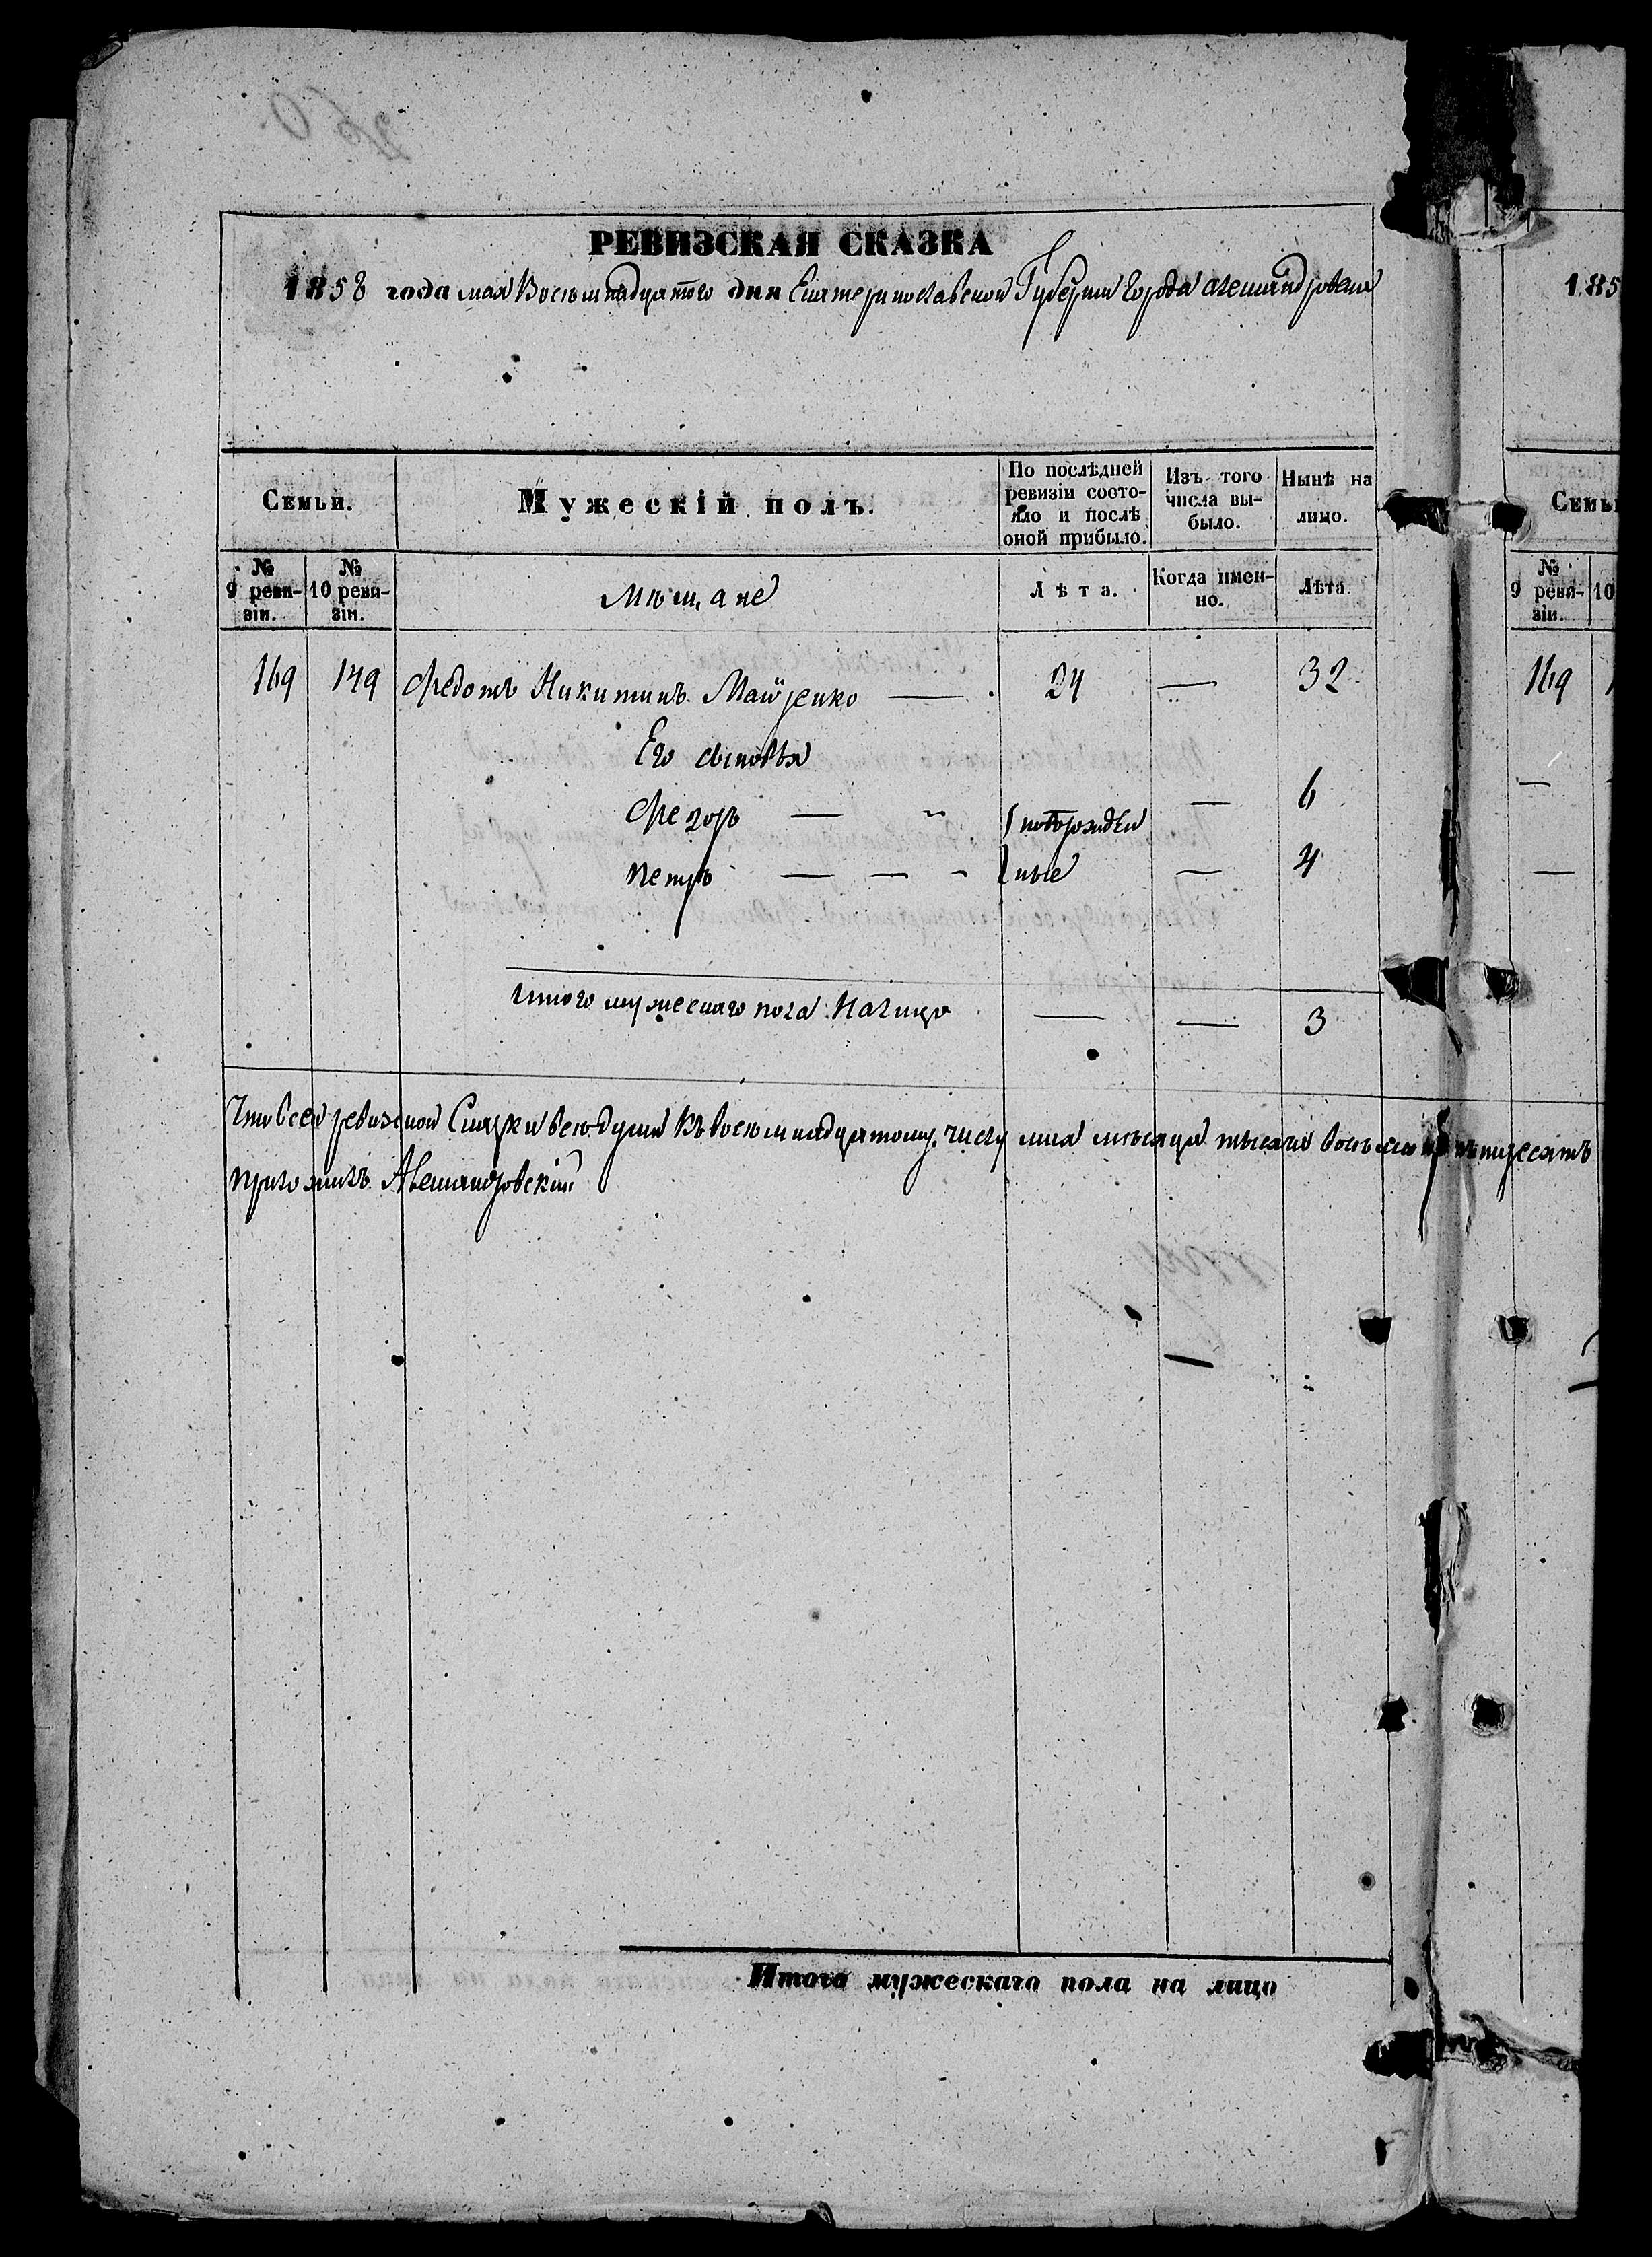 РЕВИЗСКАЯ СКАЗКА
1858 года мая Восемнадцатого дня Екатеринославской Губернии города Александровска
185
Семьи.
Мужескій полъ.
По послѣдней ревизіи состояло и послѣ оной прибыло.
Изъ того числа выбыло.
Нынѣ на лицо.
Семьи
№ 9 ревизіи.
№ 10 ревизіи.
Мѣщане
Лѣта.
Когда имен-
но.
Лѣта.
№ 9 реви-
зіи.
10
169 149 Федотъ Никитинъ Майренко — 24 — 32
169
Его сыновья
Федоръ — новорожден — 6
Петръ — — ные — 4
Итого мужескаго пола налицо — — 3
Что в сей ревизской Сказки все души къ восемнадцатому числу мая месяца тысяча восемьсот пятдесятъ
Александровскій
Итого мужескаго пола на лицо